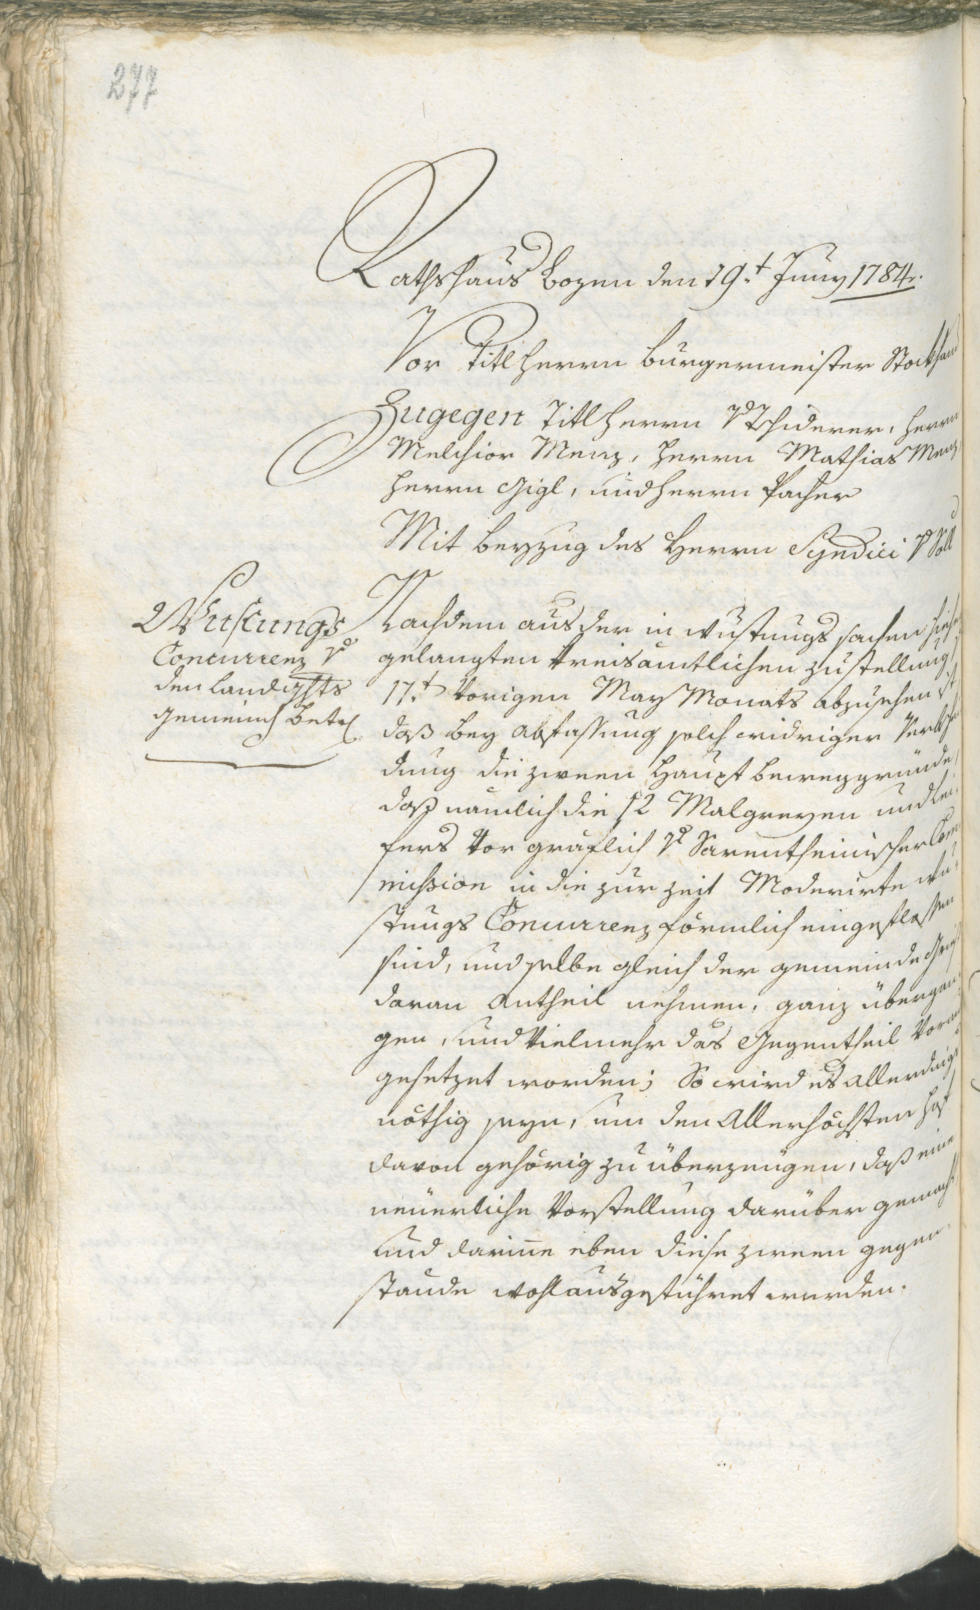 277
Rathshaus Bozen den 19.t Juny 1784.
Vor Titl Herrn Burgermeister Stockha
Zugegen Titl Herrn v Tschiderer, Herrn
Melchior Menz, Herrn Mathias Menz
Herrn Gigl, und Herrn Pacher
Mit Beyzug des Herrn Syndici v Söll
Wustungs
Concurrenz v
den Landgchts
gemeinch betr
Nachdem aus der in Wustungs sachen hieher
gelangten Kreisämtlichen zustellung
17.t vorigen May Monats abzusehen ist
daß bey abfassung solch widriger Verbsche
dung die zween Haupt beweggründe
daß nämlich die 12 Malgreyen und Lei
fers vor gräflich v Sarentheinischer Com
mission in die zur zeit Moderirte Wu
stungs Concurrenz förmlich eingeflossen
sind, und selbe gleich der gemeinde Gries
daran Antheil nehmen, ganz übergan
gen, und vielmehr das Gegentheil Voraus
gesetzet worden; So wird es allerdings
nöthig seyn, um den Allerhöchsten Hof
davon gehörig zu überzeugen, daß eine
neuerliche Vorstellung darüber gemacht
und darinne eben diese zween gegen
stände wohl ausgeführet werden.